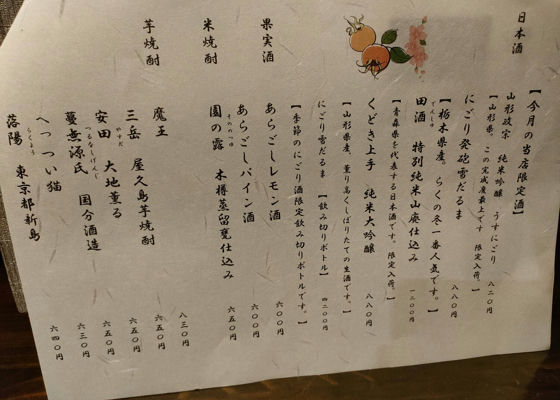 日本酒
【今月の当店限定酒】
山形政宗 純米吟醸 うすにごり 八二〇円
【山形県。この完成度最上です 限定入荷。】
にごり発砲雪だるま 八八〇円
【栃木県産。らくの冬一番人気です。】
田酒 特別純米山廃仕込み 一二〇〇円
でんしゅ
【青森県を代表する日本酒です。限定入荷。】
くどき上手 純米大吟醸 八八〇円
【山形県産。薫り高くしぼりたての生酒です。】
にごり雪だるま 【飲み切りボトル】 四二〇〇円
【季節のにごり酒限定飲み切りボトルです。】
果実酒
あらごしレモン酒 六〇〇円
あらごしパイン酒 六〇〇円
米焼酎
園の露 木樽蒸留甕仕込み 六五〇円
そののつゆ
芋焼酎
魔王 八三〇円
三岳 屋久島芋焼酎 六五〇円
安田 大地薫る 六五〇円
やすだ
蔓無源氏 国分酒造 六三〇円
つるなしげんぢ
へっつい猫 六四〇円
洛陽 東京都新島
らくよう